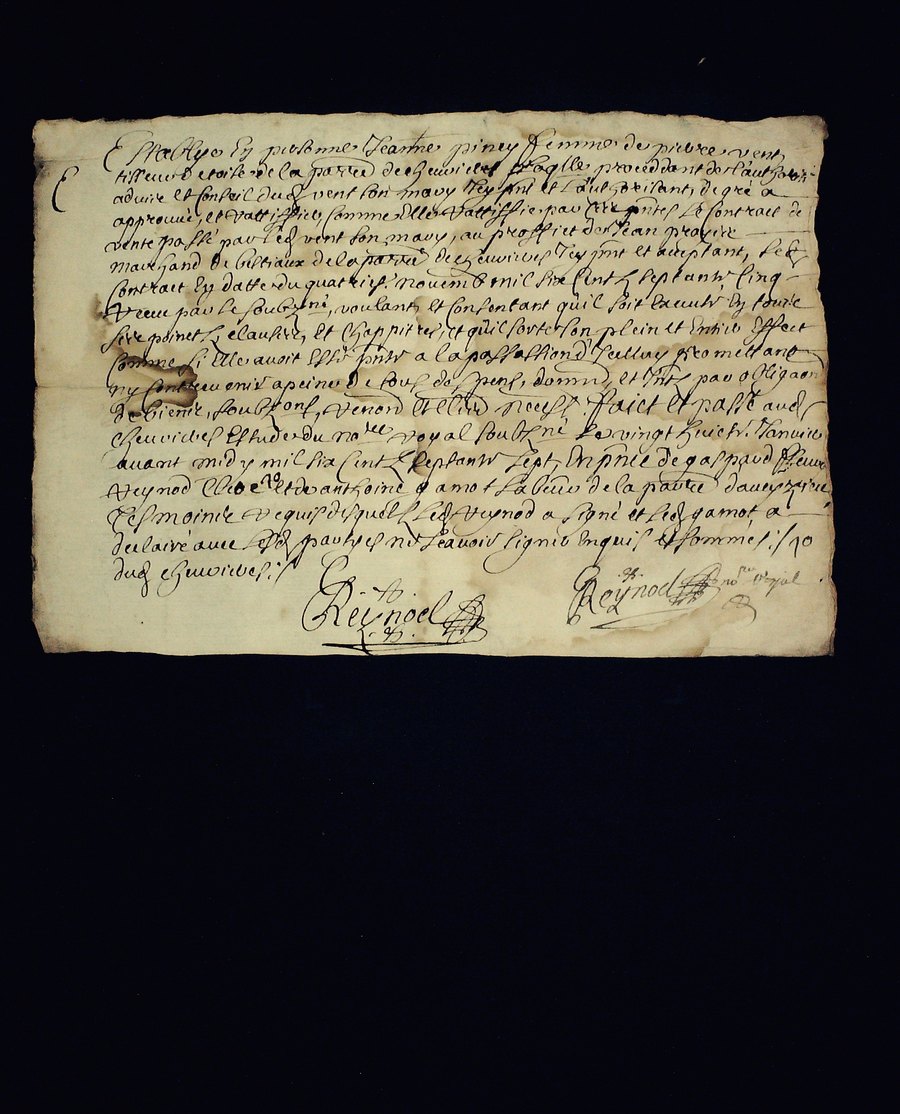 Establye En personne Jeanne piney femme de pierre vent
tisseur de toile de la parre de chevrieres Laqlle proceddant de l'authorité
advire et Conseil dud vent son mary Icy pnt et L'authorisant, de gré a
approuvé, et rattiffié, comme Elle rattiffie par ces pntes Le Contrait de
vente passé par led vent son mary, au proffict de Jean
marchand de bestiaux de la parre de chevrieres Icy pnt et acceptant, Led
Contract En datte du quatries novemb mil six Cent septante Cinq
receu par le soubz né, voulant, et Consentant qu'il soit Executé En tous
ses points, clauses, et Chappitres, et qu'il sorte son plein et Entier Effect
Comme si Elle avoit Esté pnte a la passation d'Icelluy promettant
ny Contrevenir a peine de tous despens, domm, et Intz par obligaon
de biens, soubzons, renon et clau necess. faict et passé aud
chevrieres Estude du nore royal soubz né Le vingt huict Janvier
avant midy mil six Cent septante sept, En pnce de gaspard
reynod clerc et de anthoine gamot Labeur de la parre
Tesmoins requis desquels Led reynod a signé et Led gamot, a
declairé avec Lesd parties ne sçavoir signer Enquis et sommés
dud chevrieres
Reynod
Reynod nore royal